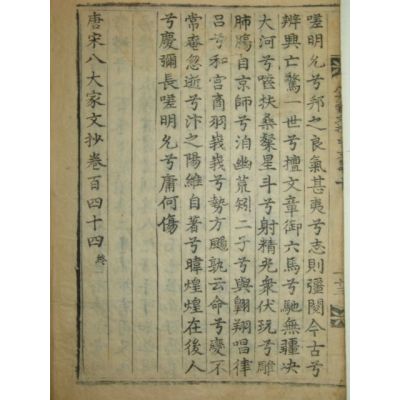 嗟明允兮邦之良氣甚夷兮志則彊閱今古兮
辨興亡驚一世兮擅文章御六馬兮馳無疆决
大河兮噬扶桑粲星斗兮射精光衆伏玩兮雕
肺膓自京師兮洎幽荒矧二子兮與翶翔唱律
呂兮和宮商羽峩峩兮勢方颺孰云命兮變不
常奄忽逝兮汴之陽維自著兮暐煌煌在後人
兮慶彌長嗟明允兮庸何傷
唐宋八大家文抄卷百四十四 終